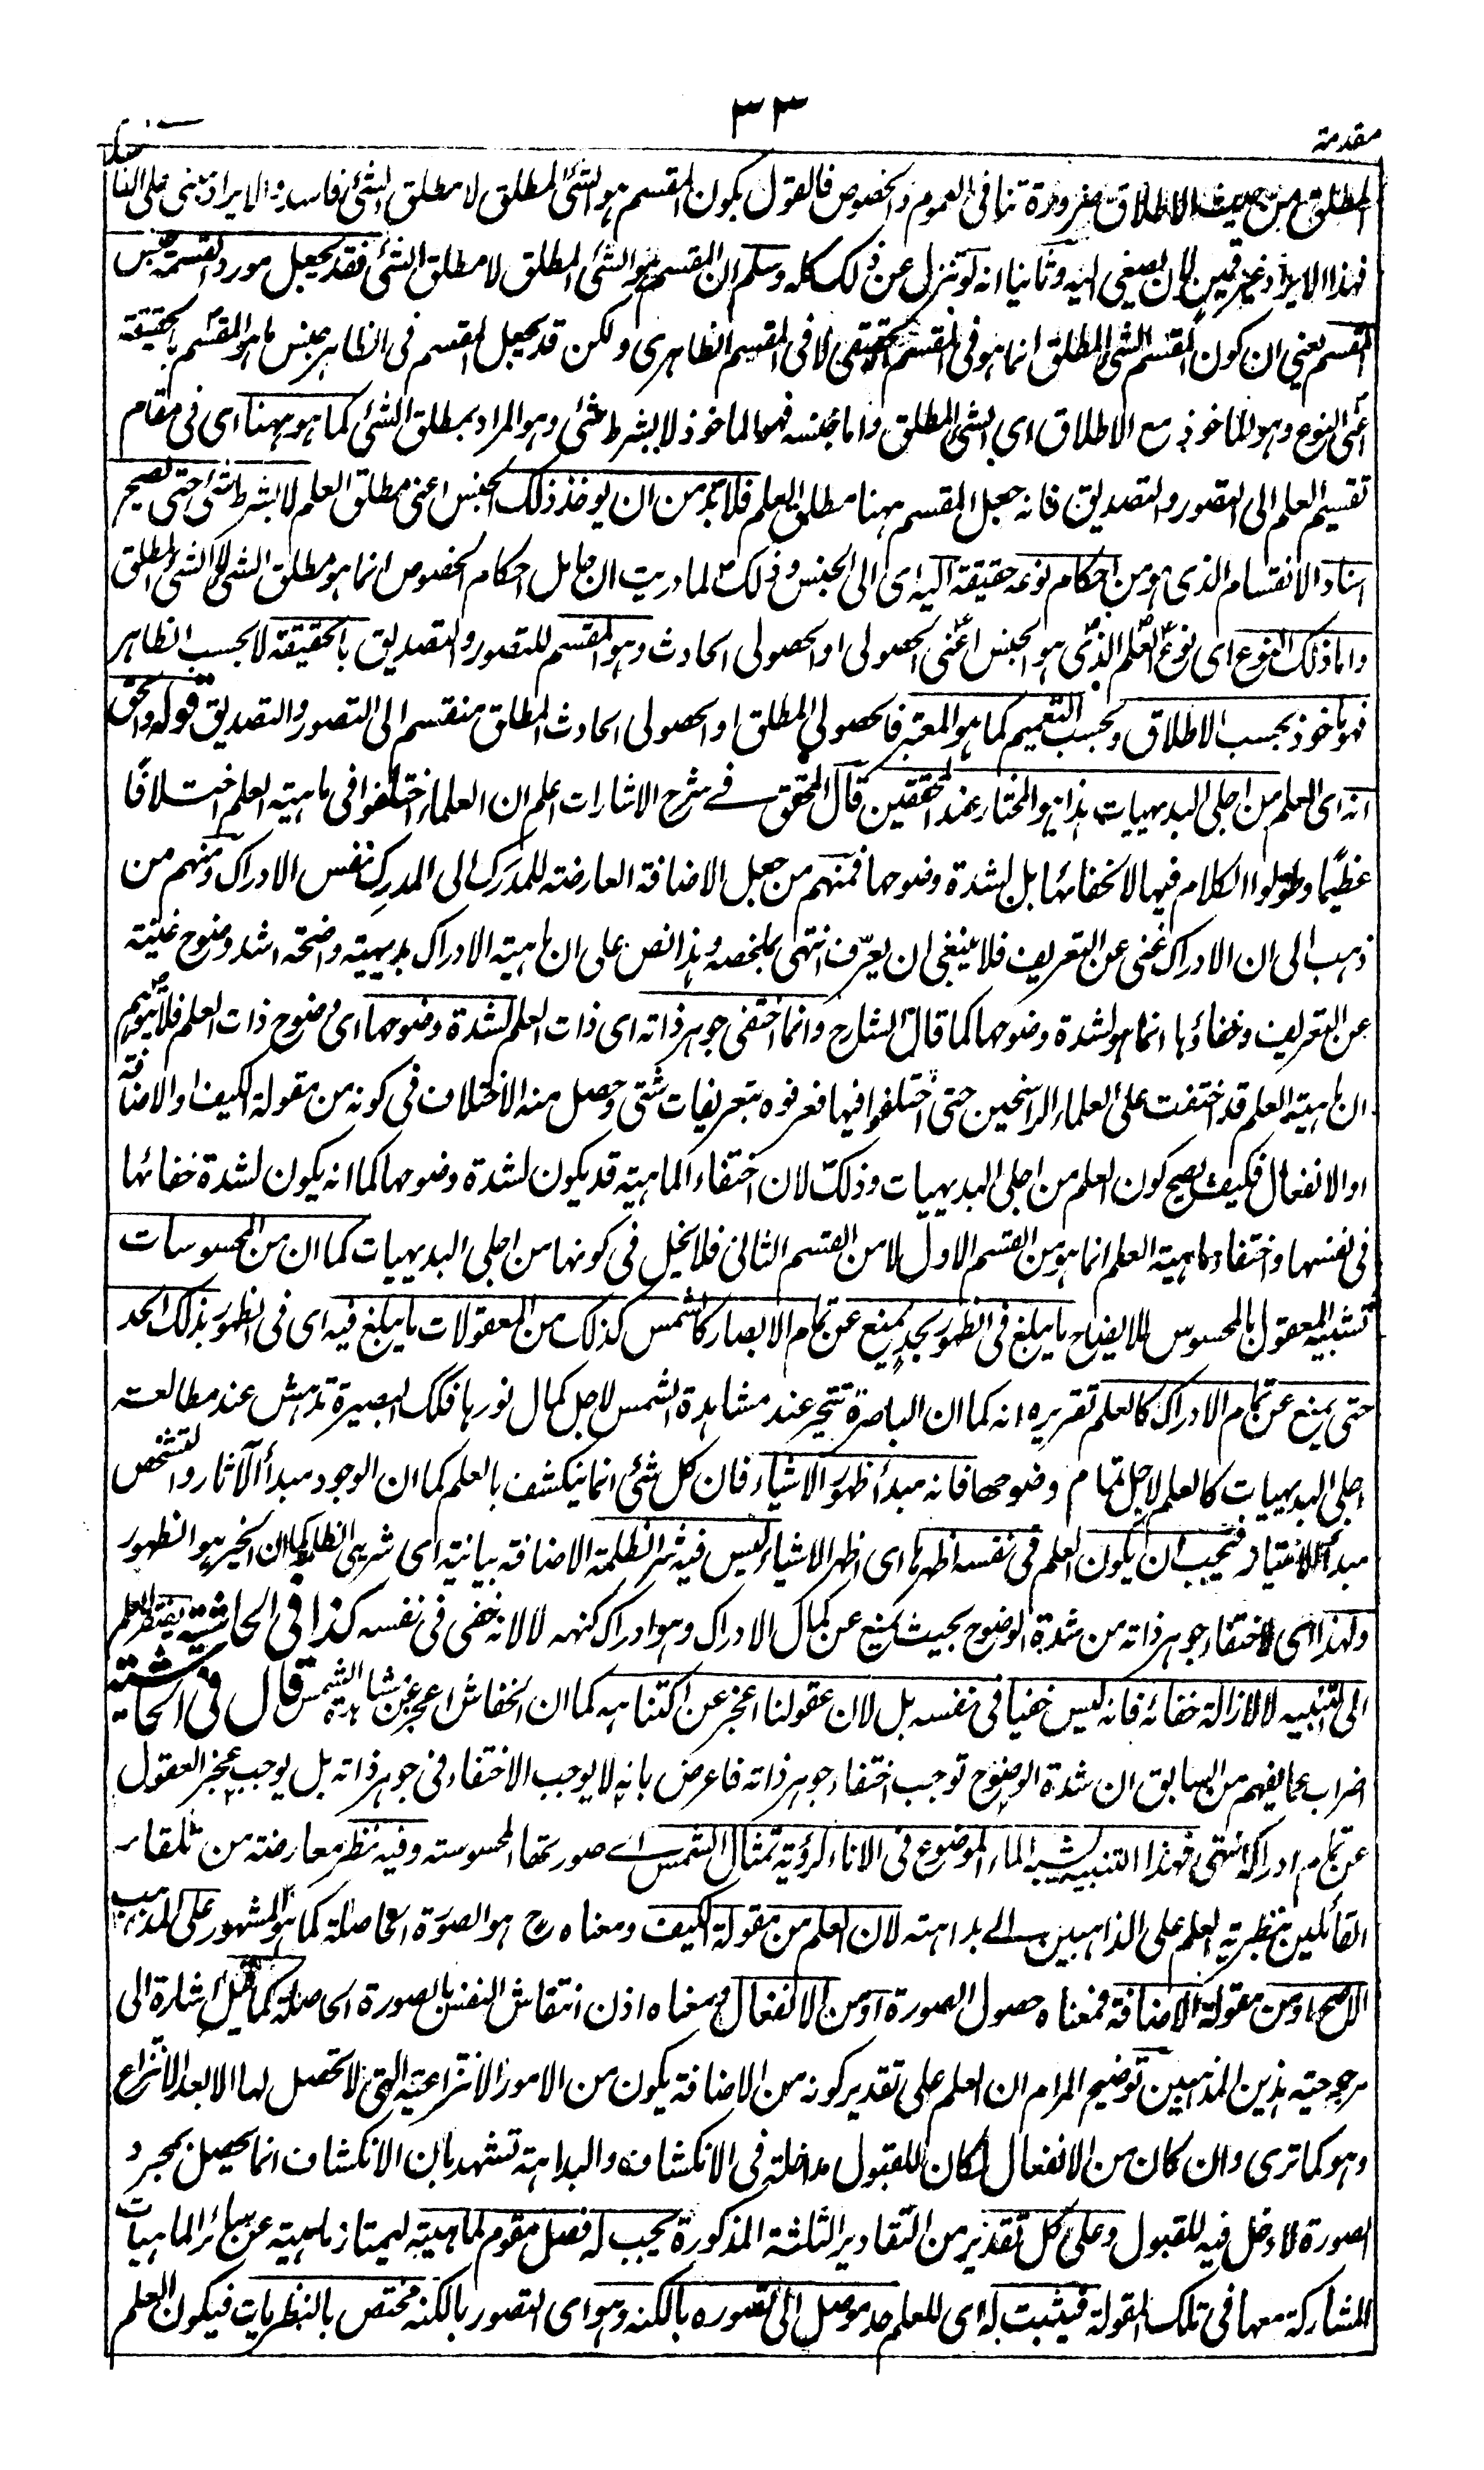 ٣٣
مقدمة
المطلق من حيث الاطلاق ضرورة تنافى العموم والخصوص فالقول بكون المقسم هو الشئ المطلق لا مطلق الشئ فاسد والايراد مبنى على الفا
فهذا الايراد غير قمين لان يصغى اليه وثانيا انه لو تنزل عن ذلك كله وسلم ان المقسم هو الشئ المطلق لا مطلق الشئ فقد يجعل مورد القسمة جنس
المقسم يعنى ان كون المقسم الشئ المطلق انما هو فى المقسم الحقيقى لا فى المقسم الظاهرى ولكن قد يجعل المقسم فى الظاهر جنس ما هو المقسم بالحقيقة
اعنى النوع وهو الماخوذ مع الاطلاق اى الشئ المطلق واما جنسه فهو الماخوذ لا بشرط شئ وهو المراد بمطلق الشئ كما هو ههنا اى فى مقام
تقسيم العلم الى التصور والتصديق فانه جعل المقسم ههنا مطلق العلم فلا بد من ان يوخذ ذلك الجنس اعنى مطلق العلم لا بشرط شئ حتى يصح
اسناد الانقسام الذى هو من احكام نوعه حقيقة اليه اى الى الجنس وذلك لما دريت ان حامل احكام الخصوص انما هو مطلق الشئ لا الشئ المطلق
واما ذلك النوع اى نوع العلم الذى هو الجنس اعنى الحصولى او الحصولى الحادث وهو المقسم للتصور والتصديق بالحقيقة لا بحسب الظاهر
فهو ماخوذ بحسب الاطلاق وبحسب التعميم كما هو المعتبر فالحصولى المطلق او الحصولى الحادث المطلق منقسم الى التصور والتصديق قوله والحق
انه اى العلم من اجلى البديهيات هذا هو المختار عند المحققين قال المحقق فے شرح الاشارات اعلم ان العلماء اختلفوا فى ماهية العلم اختلافا
عظيما وطولوا الكلام فيها لا لخفائها بل لشدة وضوحها فمنهم من جعل الاضافة العارضة للمدرك الى المدرك نفس الادراك ومنهم من
ذهب الى ان الادراك غنى عن التعريف فلا ينبغى ان يعرّف انتهى بملخصه وهذا نص على ان ماهية الادراك بديهية واضحة اشد وضوح غنية
عن التعريف وخفاؤها انما هو لشدة وضوحها كما قال الشارح وانما اختفى جوهر ذاته اى ذات العلم لشدة وضوحها اى وضوح ذات العلم فلا يتوهم
ان ماهية العلم قد اختفت على العلماء الراسخين حتى اختلفوا فيها فعرفوه بتعريفات شتى وحصل منه الاختلاف فى كونه من مقولة الكيف او الاضافة
او الانفعال فكيف يصح كون العلم من اجلى البديهيات وذلك لان اختفاء الماهية قد يكون لشدة وضوحها كما انه يكون لشدة خفائها
فى نفسها واختفاء ماهية العلم انما هو من القسم الاول لا من القسم الثانى فلا يخل فى كونها من اجلى البديهيات كما ان من المحسوسات
تشبيه المعقول بالمحسوس للايضاح ما يبلغ فى الظهور بحد يمنع عن تمام الابصار كالشمس كذلك من المعقولات ما يبلغ فيه اى فى الظهور بذلك الحد
حتى يمنع عن تمام الادراك كالعلم تقريره انه كما ان الباصرة تتحير عند مشاهدة الشمس لاجل كمال نورها فكذلك البصيرة تدهش عند مطالعة
اجلى البديهيات كالعلم لاجل تمام وضوحها فانه مبدأ ظهور الاشياء فان كل شئ انما ينكشف بالعلم كما ان الوجود مبدأ الآثار والتشخص
مبدأ الامتياز فيجب ان يكون العلم فى نفسه اظهرها اى اظهر الاشياء ليس فيه شر الظلمة الاضافة بيانية اى شر هى الظلمة كما ان الخير هو الظهور
ولهذا اى لاختفاء جوهر ذاته من شدة الوضوح بحيث يمنع عن كمال الادراك وهو ادراك كنهه لا لانه خفى فى نفسه كذا فى الحاشية يفتقر العلم
الى التنبيه لا لازالة خفائه فانه ليس خفيا فى نفسه بل لان عقولنا اعجز عن اكتناهه كما ان الخفاش اعجز عن مشاهدة الشمس قال فى الحاشية
اضراب عما يفهم من السابق ان شدة الوضوح توجب اختفاء جوهر ذاته فاعرض بانه لا يوجب الاختفاء فى جوهر ذاته بل يوجب عجز العقول
عن تمام ادراكه انتهى فهذا التنبيه يشبه الماء الموضوع فى الاناء لرؤية تمثال الشمس اے صورتها المحسوسة وفيه نظر معارضة من تلقاء
القائلين بنظرية العلم على الذاهبين الے بداهته لان العلم من مقولة الكيف ومعناه ح هو الصورة الحاصلة كما هو المشهور على المذهب
الاصح او من مقولة الاضافة فمعناه حصول الصورة او من الانفعال ومعناه اذن انتقاش النفس بالصورة الحاصلة كما قيل اشارة الى
مرجوحية هذين المذهبين توضيح المرام ان العلم على تقدير كونه من الاضافة يكون من الامور الانتزاعية التى لا تحصل لها الا بعد الانتزاع
وهو كما ترى وان كان من الانفعال لكان للقبول مداخلة فى الانكشاف والبداهة تشهد بان الانكشاف انما يحصل بمجرد
الصورة لا دخل فيه للقبول وعلى كل تقدير من التقادير الثلثة المذكورة يجب له فصل مقوم لماهيته ليمتاز ماهيته عن سائر الماهيات
المشاركة معها فى تلك المقولة فيثبت له اى للعلم حد موصل الى تصوره بالكنه وهو اى التصور بالكنه مختص بالنظريات فيكون العلم